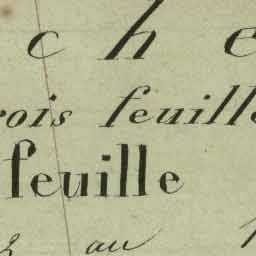 c h e
rois feuille
feuille
au